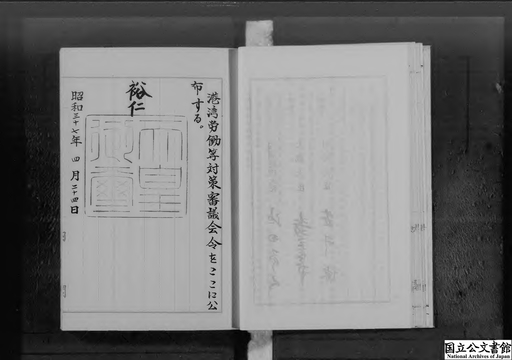 港湾労働等対策審議会令をここに公
布する。
裕仁
天皇
御璽
昭和三十七年四月二十四日
国立公文書館
National Archives of Japan